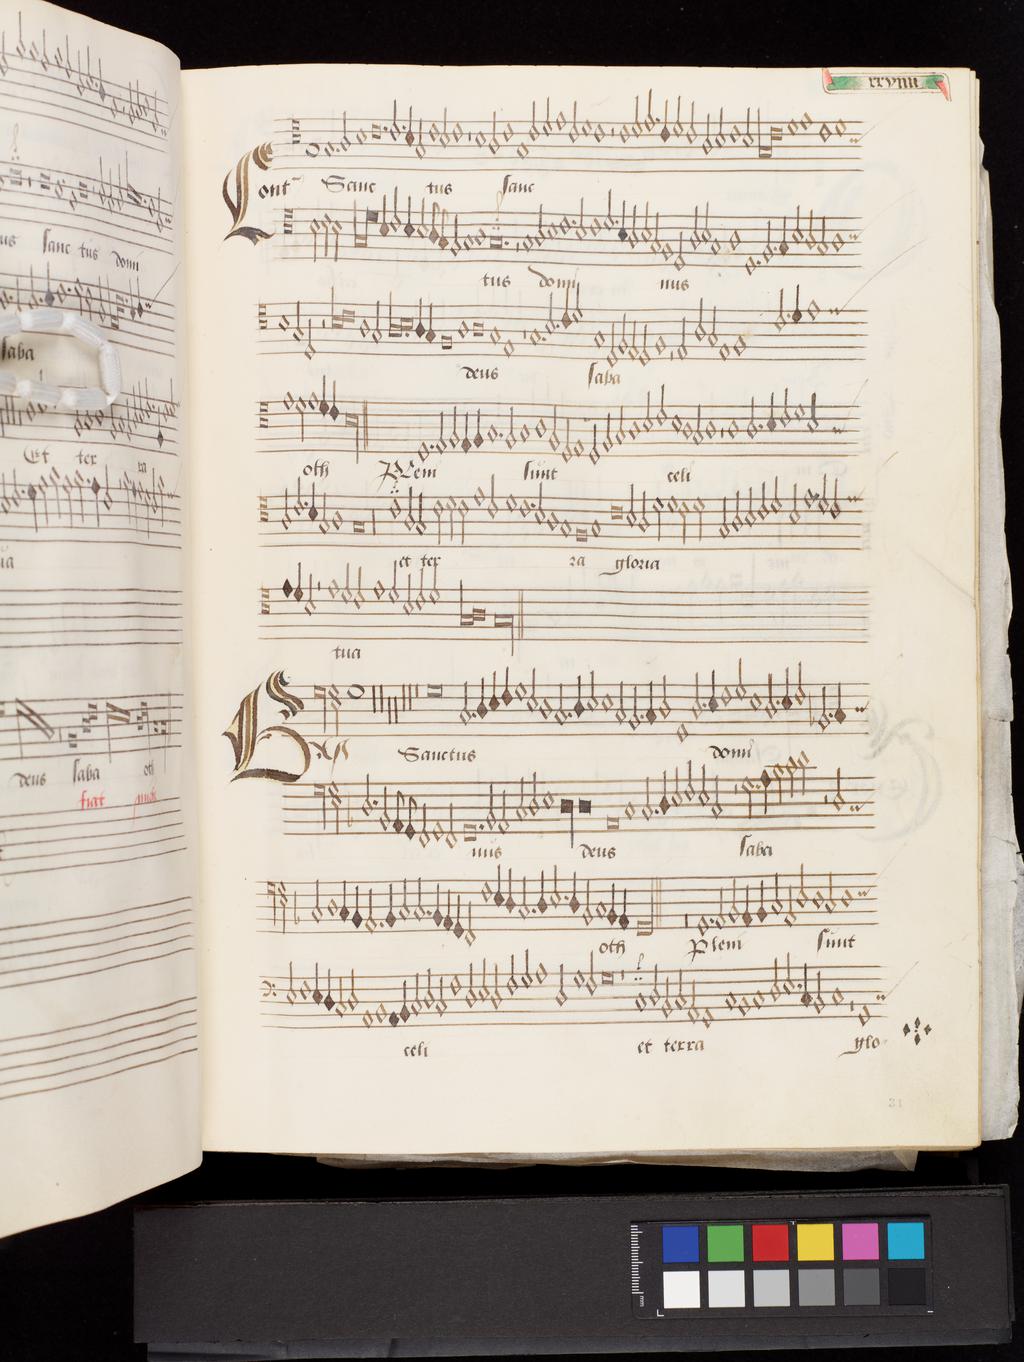 us sanc tus domi
saba
Et ter ra
deus saba oth
fiat
xxviiii
Cont Sanc tus sanc
tus domi nus
deus saba
oth Plem sunt celi
et ter ra gloria
tua
Sanctus domi
nus deus saba
oth Plem sunt
celi et terra glo
31
mm